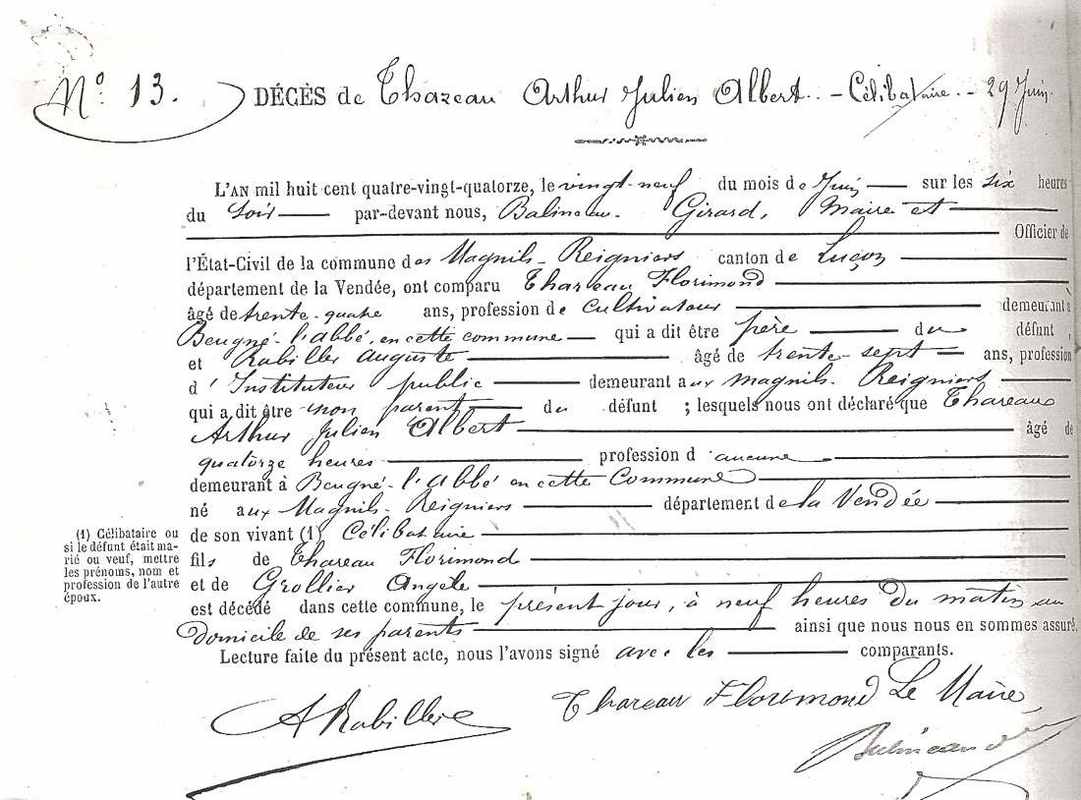 N° 13. DÉCÈS de Thareau Arthur Julien Albert.. - Célibataire. - 29 Juin.
L'AN mil huit cent quatre-vingt-quatorze, le vingt-neuf du mois de Juin sur les six heures
du Soir par-devant nous, Girard, Maire et
Officier de
l'État-Civil de la commune des Magnils-Reigniers canton de Luçon
département de la Vendée, ont comparu Thareau Florimond
âgé de trente-quatre ans, profession de cultivateur demeurant à
Beugné-l'abbé, en cette commune qui a dit être père du défunt,
et Rabiller auguste âgé de trente-sept ans, profession
d'Instituteur public demeurant aux magnils-Reigniers
qui a dit être non parent du défunt ; lesquels nous ont déclaré que Thareau
Arthur Julien Albert âgé de
quatorze heures profession d'aucune
demeurant à Beugné-l'Abbé en cette Commune
né aux Magnils-Reigniers département de la Vendée
de son vivant (1) Célibataire
fils de Thareau Florimond
et de Grollier Angèle
est décédé dans cette commune, le présent jour, à neuf heures du matin au
domicile de ses parents ainsi que nous nous en sommes assuré.
Lecture faite du présent acte, nous l'avons signé avec les comparants.
(1) Célibataire ou
si le défunt était ma-
rié ou veuf, mettre
les prénoms, nom et
profession de l'autre
époux.
Thareau Florimond Le Maire
A Rabiller